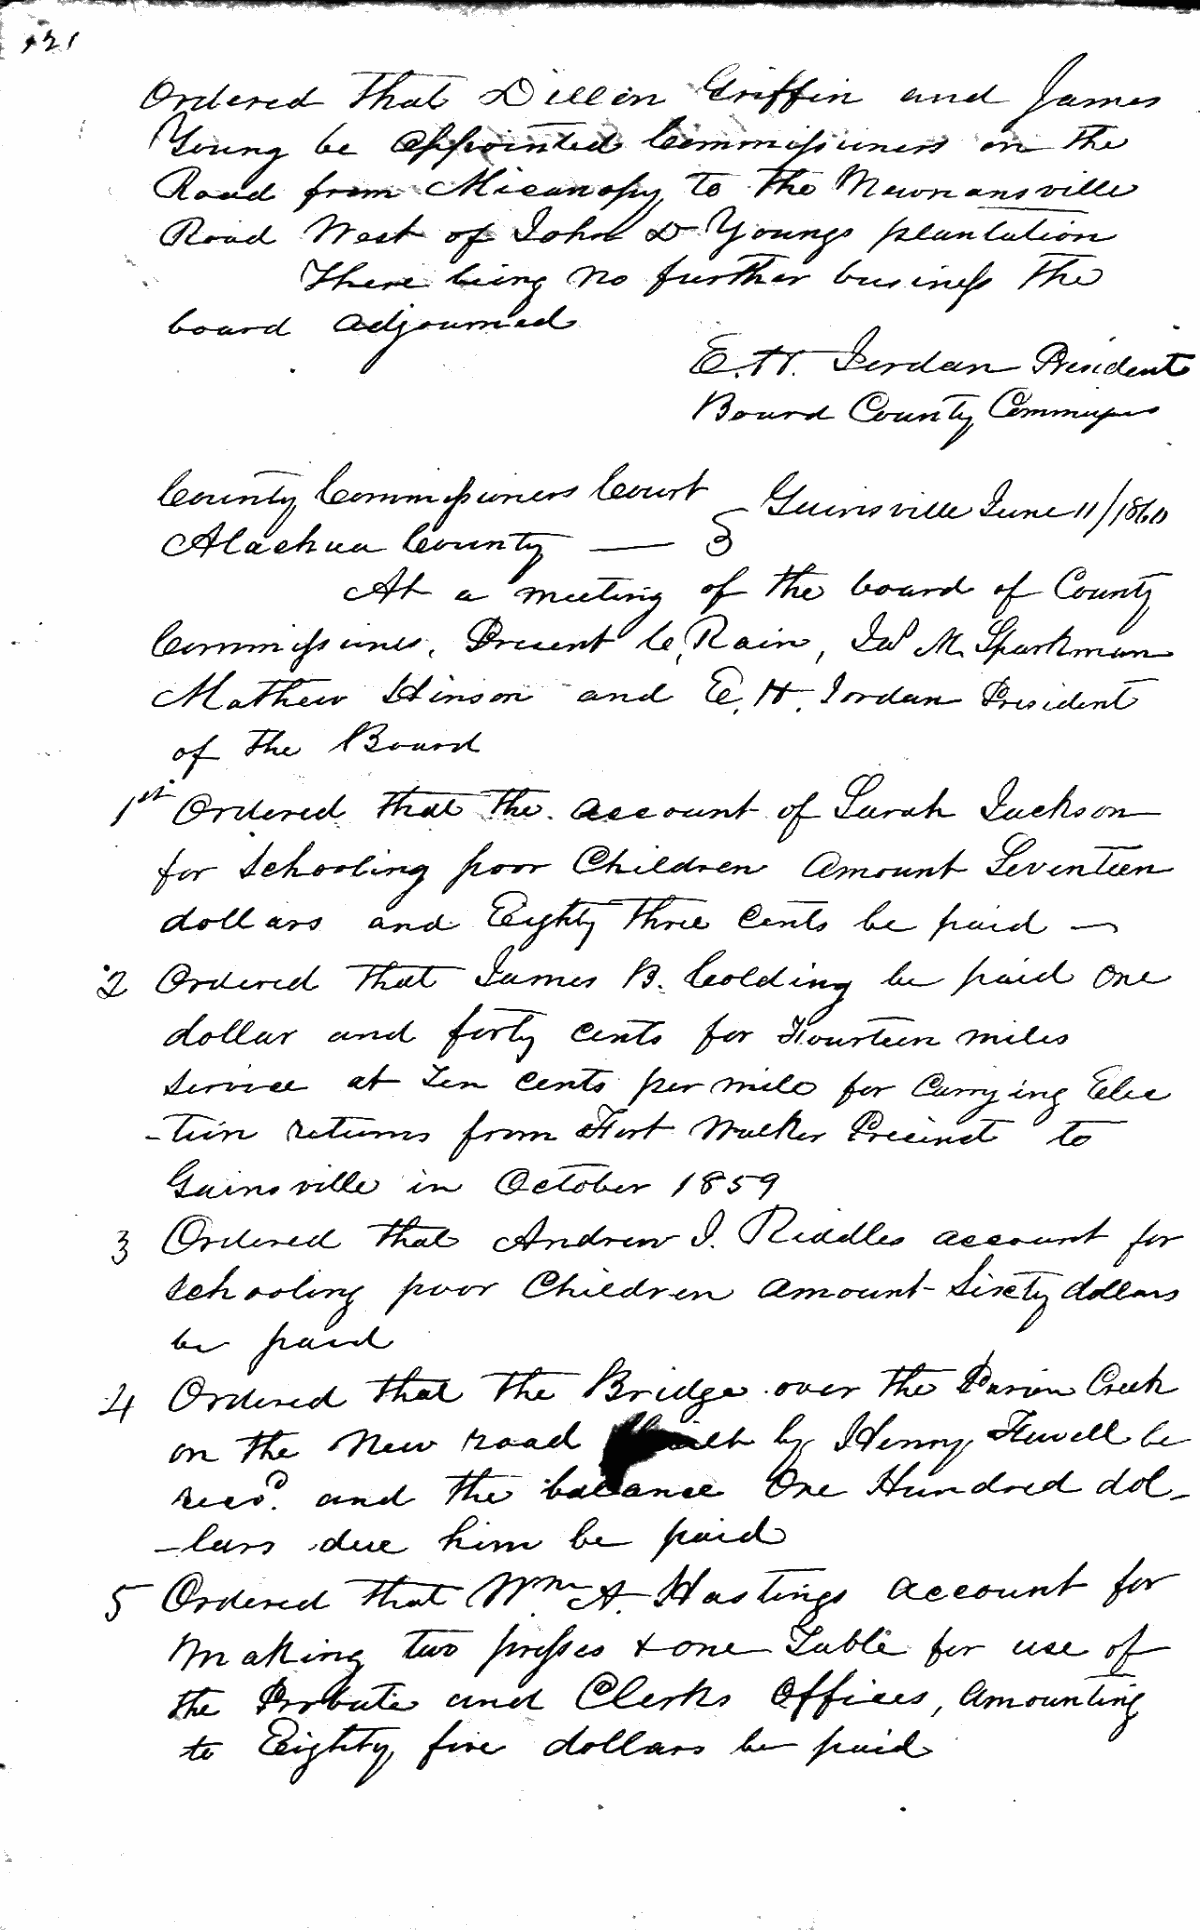 Ordered that Dillon Griffin and James
Young be appointed Commissioners on the
Road from Micanopy to the Newnansville
Road West of John D Youngs plantation
There being no further business the
board adjourned
E. H. Jordan President
Board County Commissrs
County Commissioners Court
Gainsville June 11/1860
Alachua County
At a meeting of the board of County
Commissioners, Present C. Rain, Jas M. Sparkman
Mathew Hinson and E. H. Jordan President
of the Board
1st Ordered that the account of Sarah Jackson
for Schooling poor Children Amount Seventeen
dollars and Eighty three Cents be paid
2 Ordered that James B. Colding be paid One
dollar and forty Cents for Fourteen miles
Service at Ten Cents per mile for Carrying Elec
-tion returns from Fort Walker Precinct to
Gainsville in October 1859
3 Ordered that Andrew J. Riddles account for
Schooling poor Children Amount Sixty dollars
be paid
4 Ordered that the Bridge over the Creek
on the New road built by Henry be
recd. and the balance One Hundred dol-
-lars due him be paid
5 Ordered that Wm A. Hastings account for
Making two presses & one Table for use of
the Probate and Clerks Offices, Amounting
to Eighty five dollars be paid